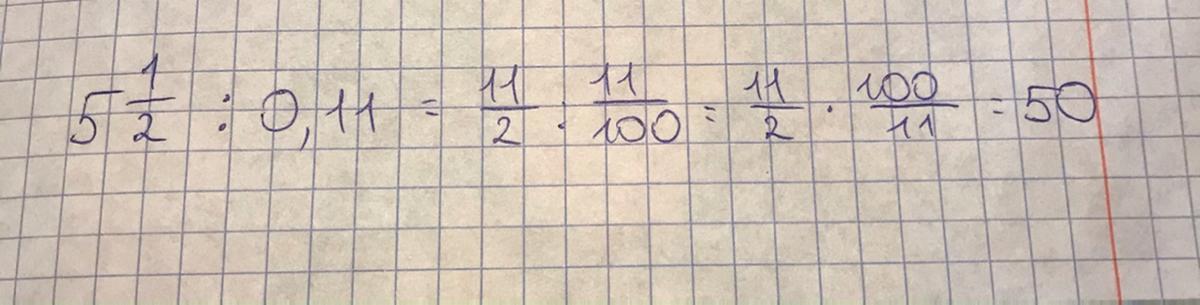 5 1/2 : 0,11 = 11/2 . 11/100 = 11/2 · 100/11 = 50